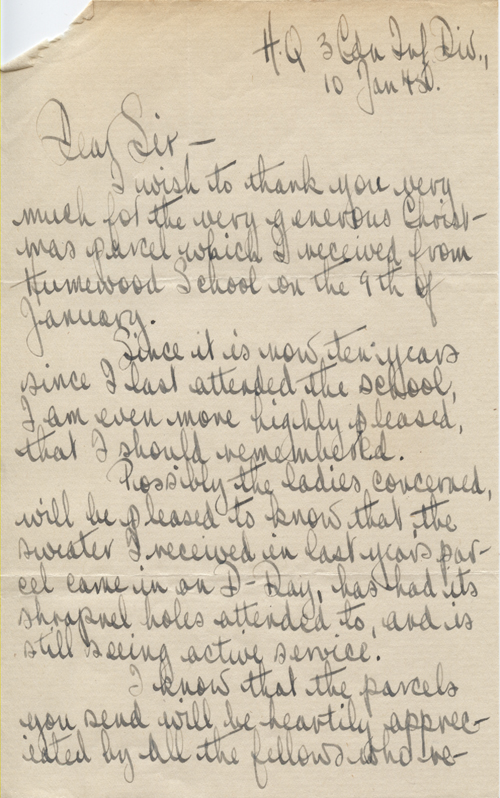 H.Q 3 Cdn Inf Div.,
10 Jan 45.
Dear Sir —
I wish to thank you very
much for the very generous Christ-
mas parcel which I received from
Humewood School on the 9th of
January.
Since it is now ten years
since I last attended the school,
I am even more highly pleased,
that I should remembered.
Possibly the ladies concerned,
will be pleased to know that the
sweater I received in last year's par-
cel came in on D-Day, has had its
shrapnel holes attended to, and is
still seeing active service.
I know that the parcels
you send will be heartily apprec-
iated by all the fellows who re-